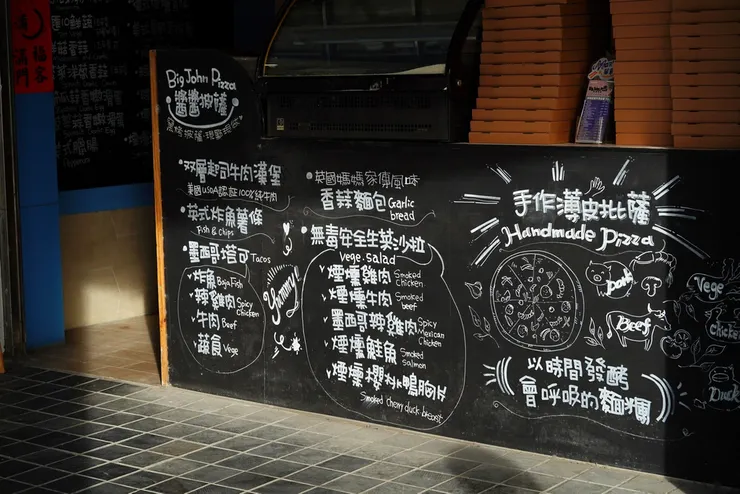 Big John Pizza
醬醬披薩
双層起司牛肉漢堡
美國USDA認証100%純牛肉
英式炸魚薯條
Fish & chips
墨西哥塔可 Tacos
炸魚 Baja Fish
辣雞肉 Spicy Chicken
牛肉 Beef
蔬食 Vege
Yummy!
英國媽媽家傳風味
香蒜麵包 Garlic bread
無毒安全生菜沙拉
vege. salad
煙燻雞肉 Smoked Chicken
煙燻牛肉 Smoked beef
墨西哥辣雞肉 Spicy Mexican Chicken
煙燻鮭魚 Smoked Salmon
煙燻櫻桃鴨胸片
Smoked cherry duck breast
手作薄皮比薩
Handmade Pizza
Pork
Beef
Vege
Chicken
Duck
以時間發酵
會呼吸的麵糰